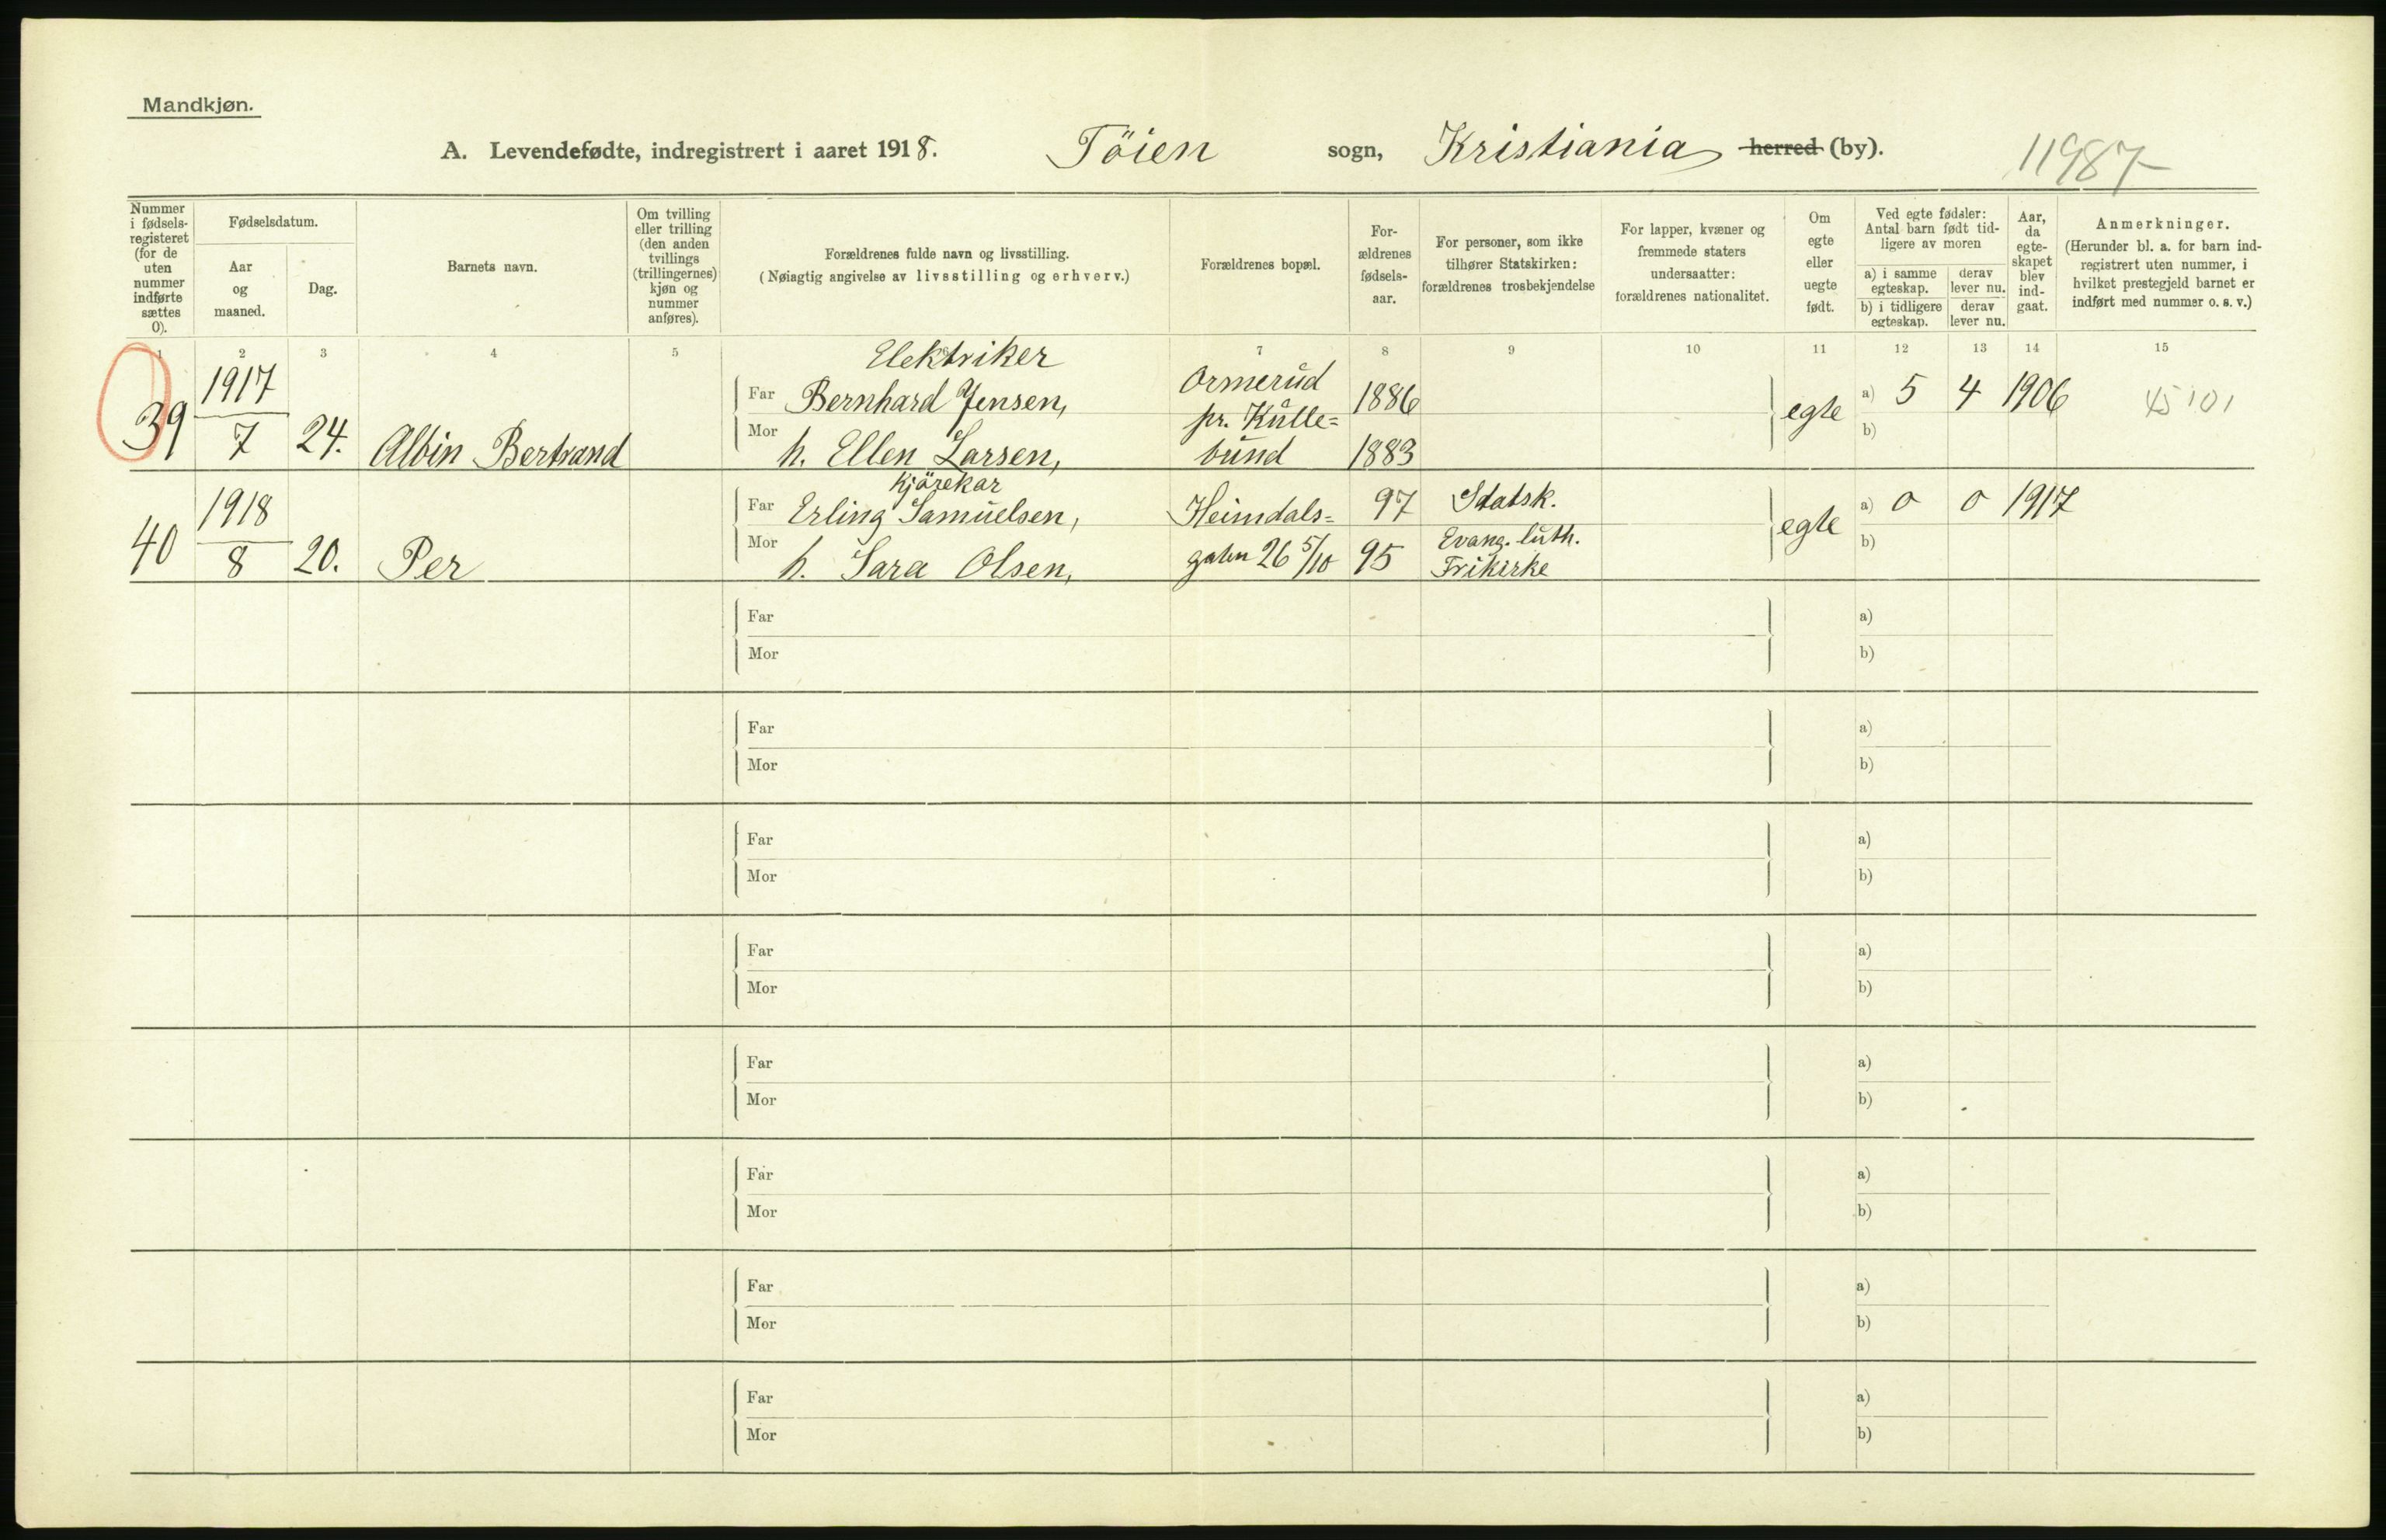 Mandkjøn.
A. Levendefødte, indregistrert i aaret 1918. Töien sogn, Kristiania herred (by). 11987
Nummer i fødselsregisteret (for de uten nummer indførte sættes 0).
Fødselsdatum.
Aar og maaned.
Dag.
Barnets navn.
Om tvilling eller trilling (den anden tvillings (trillingernes) kjøn og nummer anføres).
Forældrenes fulde navn og livsstilling.
(Nøiagtig angivelse av livsstilling og erhverv.)
Forældrenes bopæl.
Forældrenes fødselsaar.
For personer, som ikke tilhører Statskirken: forældrenes trosbekjendelse
For lapper, kvæner og fremmede staters undersaatter: forældrenes nationalitet.
Om egte eller uegte født.
Ved egte fødsler: Antal barn født tidligere av moren
a) i samme egteskap.
derav lever nu.
b) i tidligere egteskap.
derav lever nu.
Aar, da egteskapet blev indgaat.
Anmerkninger.
(Herunder bl. a. for barn indregistrert uten nummer, i hvilket prestegjeld barnet er indført med nummer o. s. v.)
1 2 3 4 5 6 7 8 9 10 11 12 13 14 15
Elektriker
39 1917 7 24. Albin Bertrand
Far Bernhard Jensen, Ormerud 1886
pr. Kulle=
Mor h. Ellen Larsen, bund 1883
egte a) 5 4 1906
b)
Kjörekar
40 1918 8 20. Per
Far Erling Samuelsen, Heimdals= 97 Statsk.
Mor h. Sara Olsen, gaten 26 5/10 95 Evang. luth.
Frikirke
egte a) 0 0 1917
b)
Far a)
Mor b)
Far a)
Mor b)
Far a)
Mor b)
Far a)
Mor b)
Far a)
Mor b)
Far a)
Mor b)
Far a)
Mor b)
Far a)
Mor b)